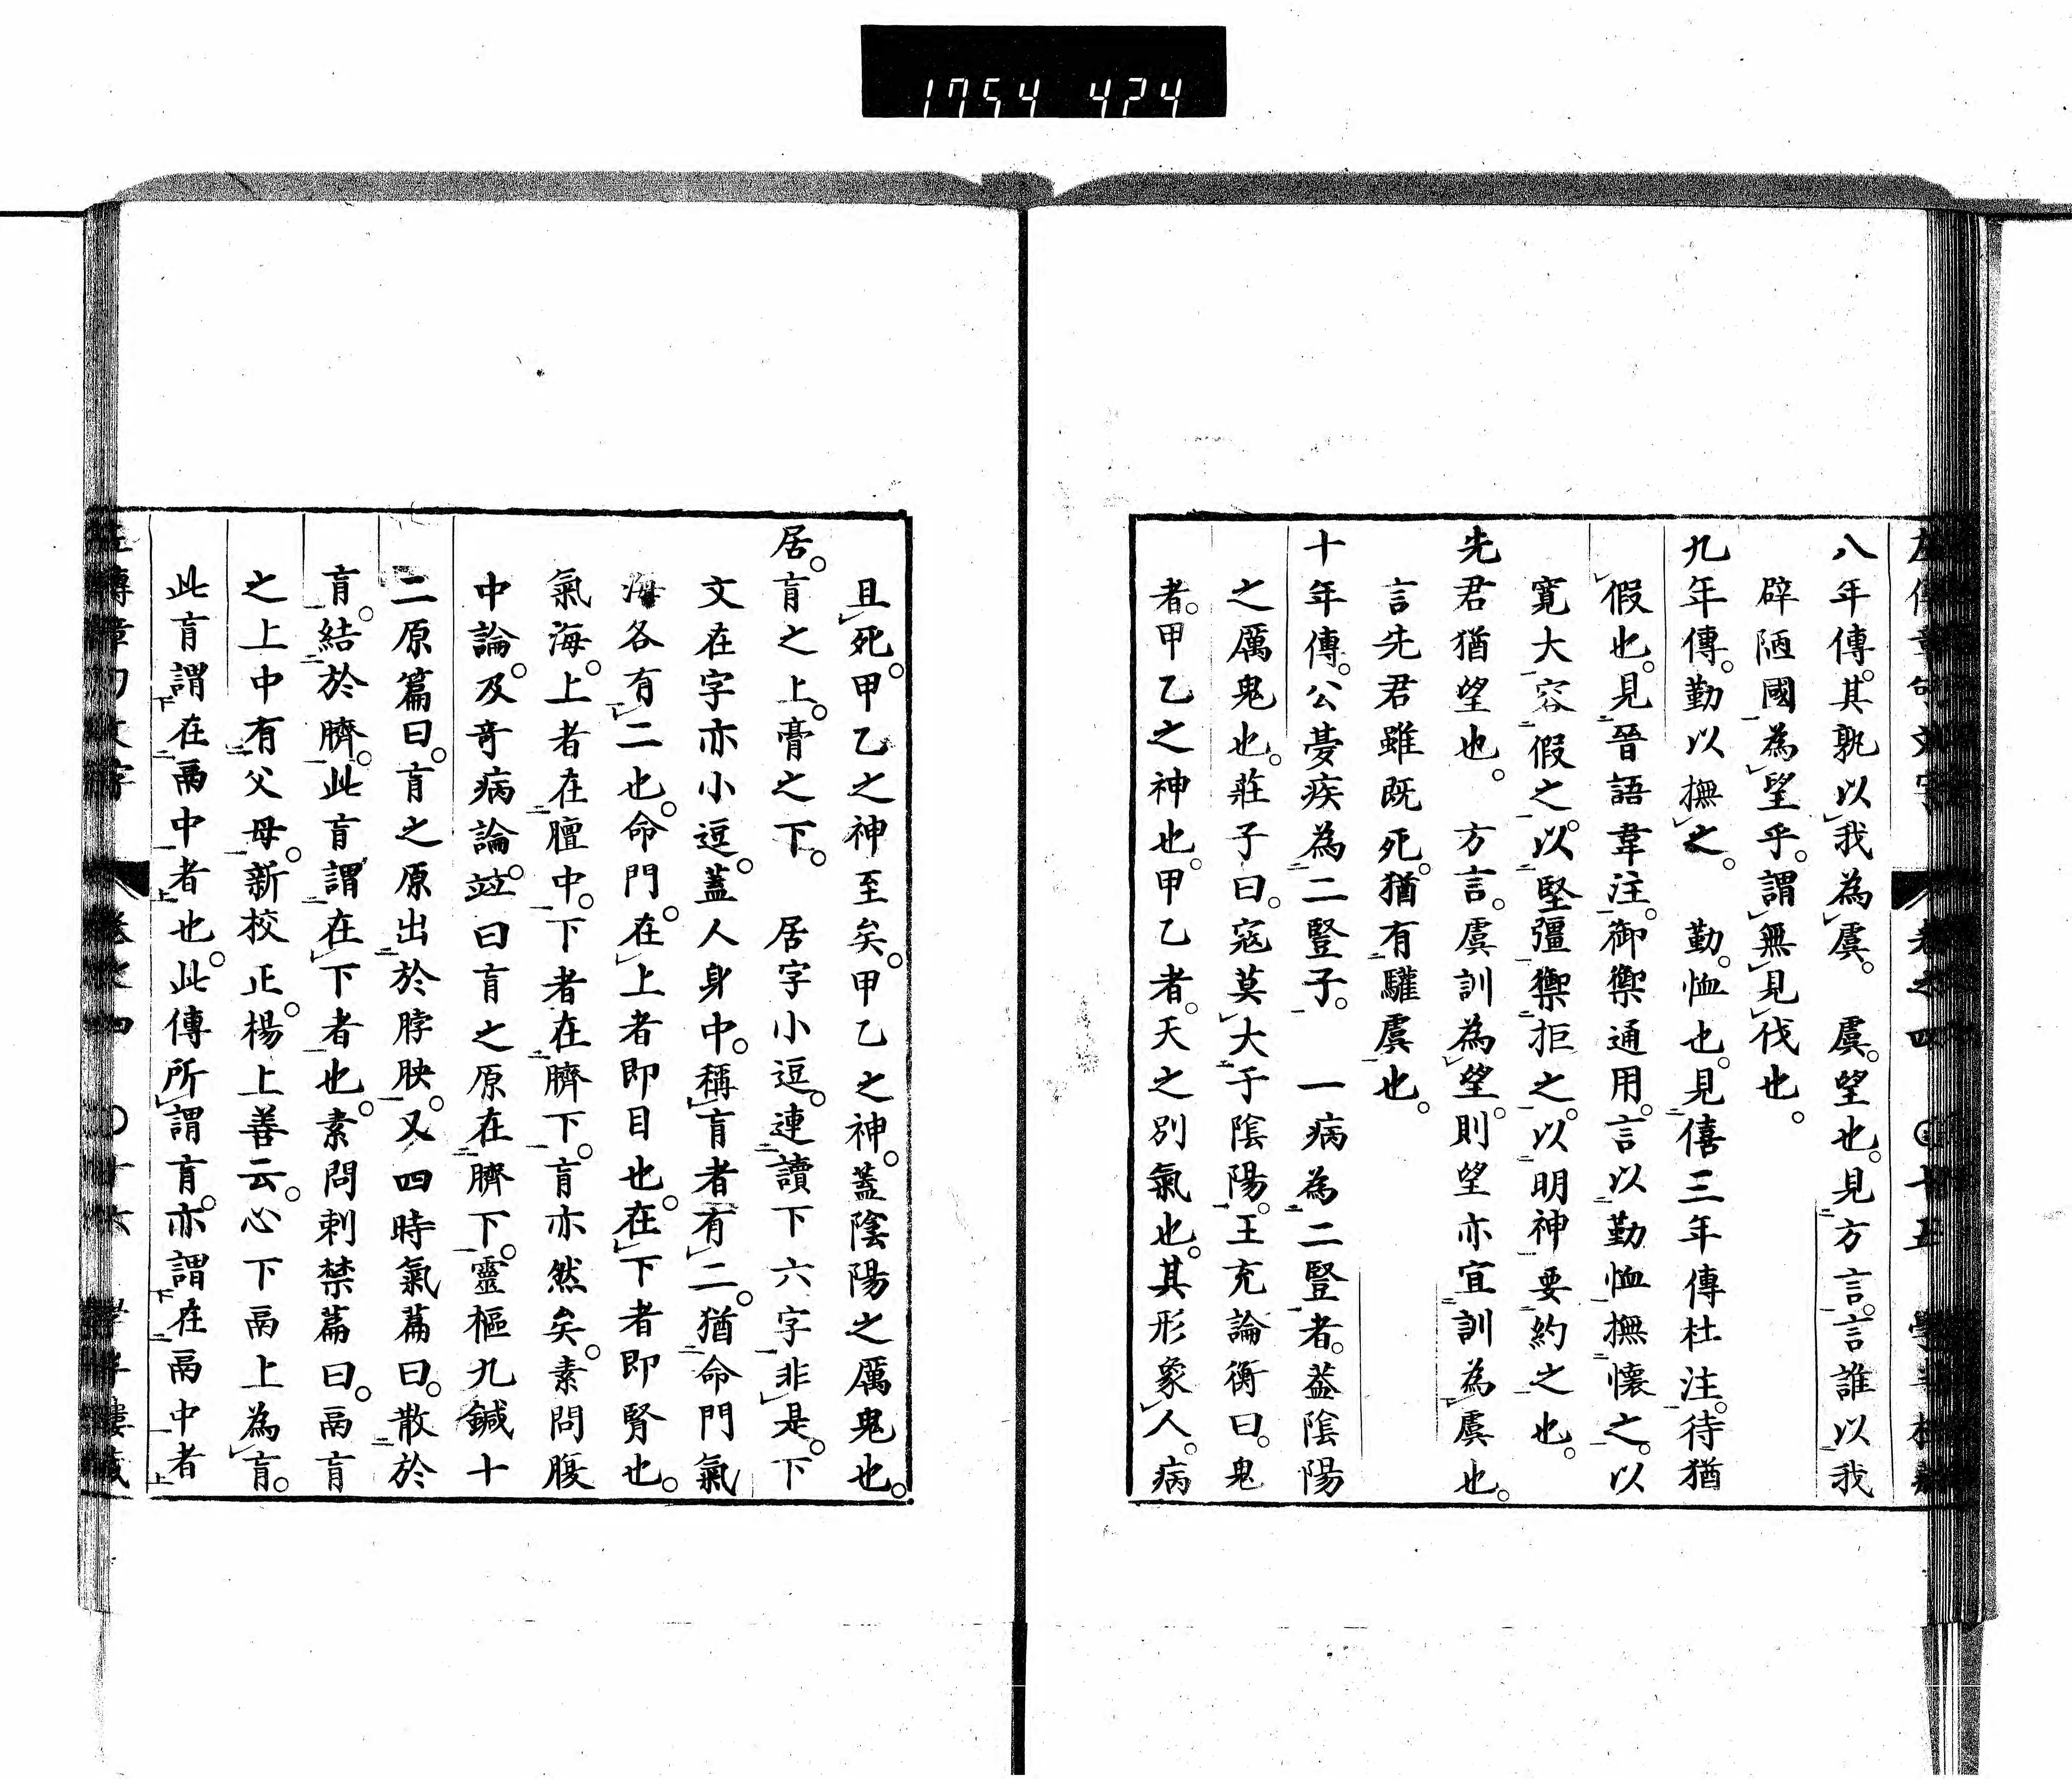 1754 424
八年傳。其孰以我為虞。　虞。望也。見方言。言誰以我
辟陋國為望乎。謂無見伐也。
九年傳。勤以撫之。　勤。恤也。見僖三年傳杜注。待猶
假也。見晉語韋注。御禦通用。言以勤恤撫懷之。以
寛大容假之。以堅彊禦拒之。以明神要約之也。
先君猶望也。　方言。虞訓為望。則望亦宜訓為虞也。
言先君雖既死。猶有驩虞也。
十年傳。公夢疾為二豎子。　一病為二豎者。蓋陰陽
之厲鬼也。莊子曰。寇莫大于陰陽。王充論衡曰。鬼
者。甲乙之神也。甲乙者。天之別氣也。其形象人。病
且死。甲乙之神至矣。甲乙之神。蓋陰陽之厲鬼也。
居。肓之上。膏之下。　居字小逗。連讀下六字非是。下
文在字亦小逗。蓋人身中。稱肓者有二。猶命門氣
海各有二也。命門。在上者即目也。在下者即腎也。
氣海。上者在膻中。下者在臍下。肓亦然矣。素問腹
中論。及奇病論。竝曰肓之原在臍下。靈樞九鍼十
二原篇曰。肓之原出於脖胦。又四時氣篇曰。散於
肓。結於臍。此肓謂在下者也。素問刺禁篇曰。鬲肓
之上中有父母。新校正。楊上善云。心下鬲上為肓。
此肓謂在鬲中者也。此傳所謂肓。亦謂在鬲中者